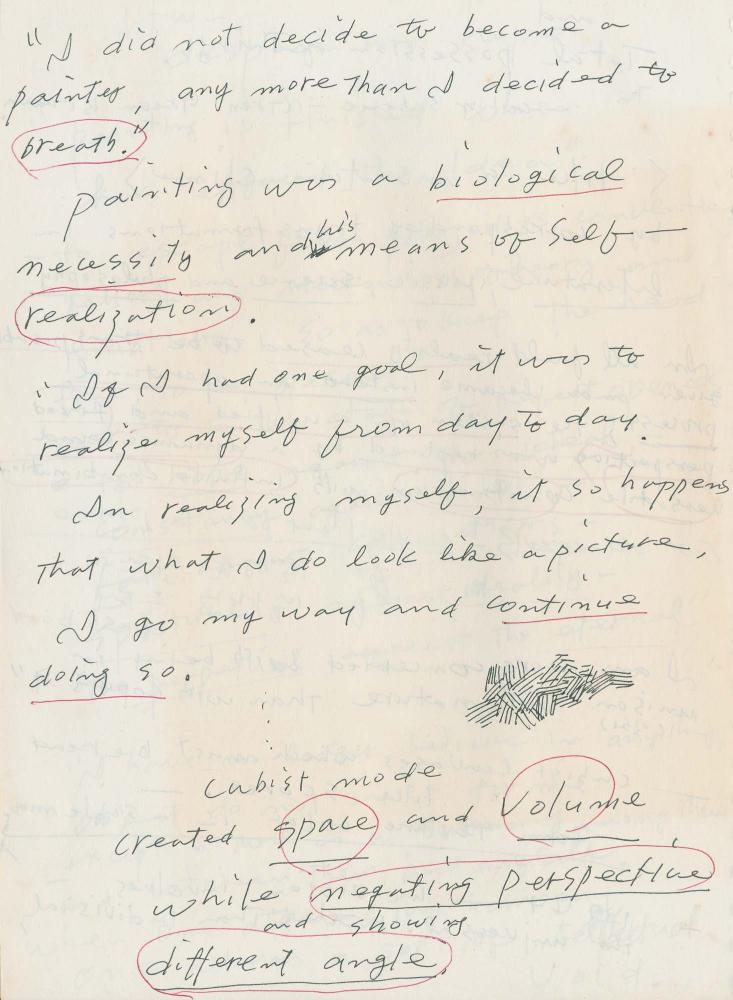 "I did not decide to become a
painter, any more than I decided to
breath."
painting was a biological
necessity and his means of self—
realization.
"If I had one goal, it was to
realize myself from day to day.
In realizing myself, it so happens
that what I do look like a picture,
I go my way and continue
doing so.
cubist mode
created space and volume,
while negating perspective
and showing
different angle,